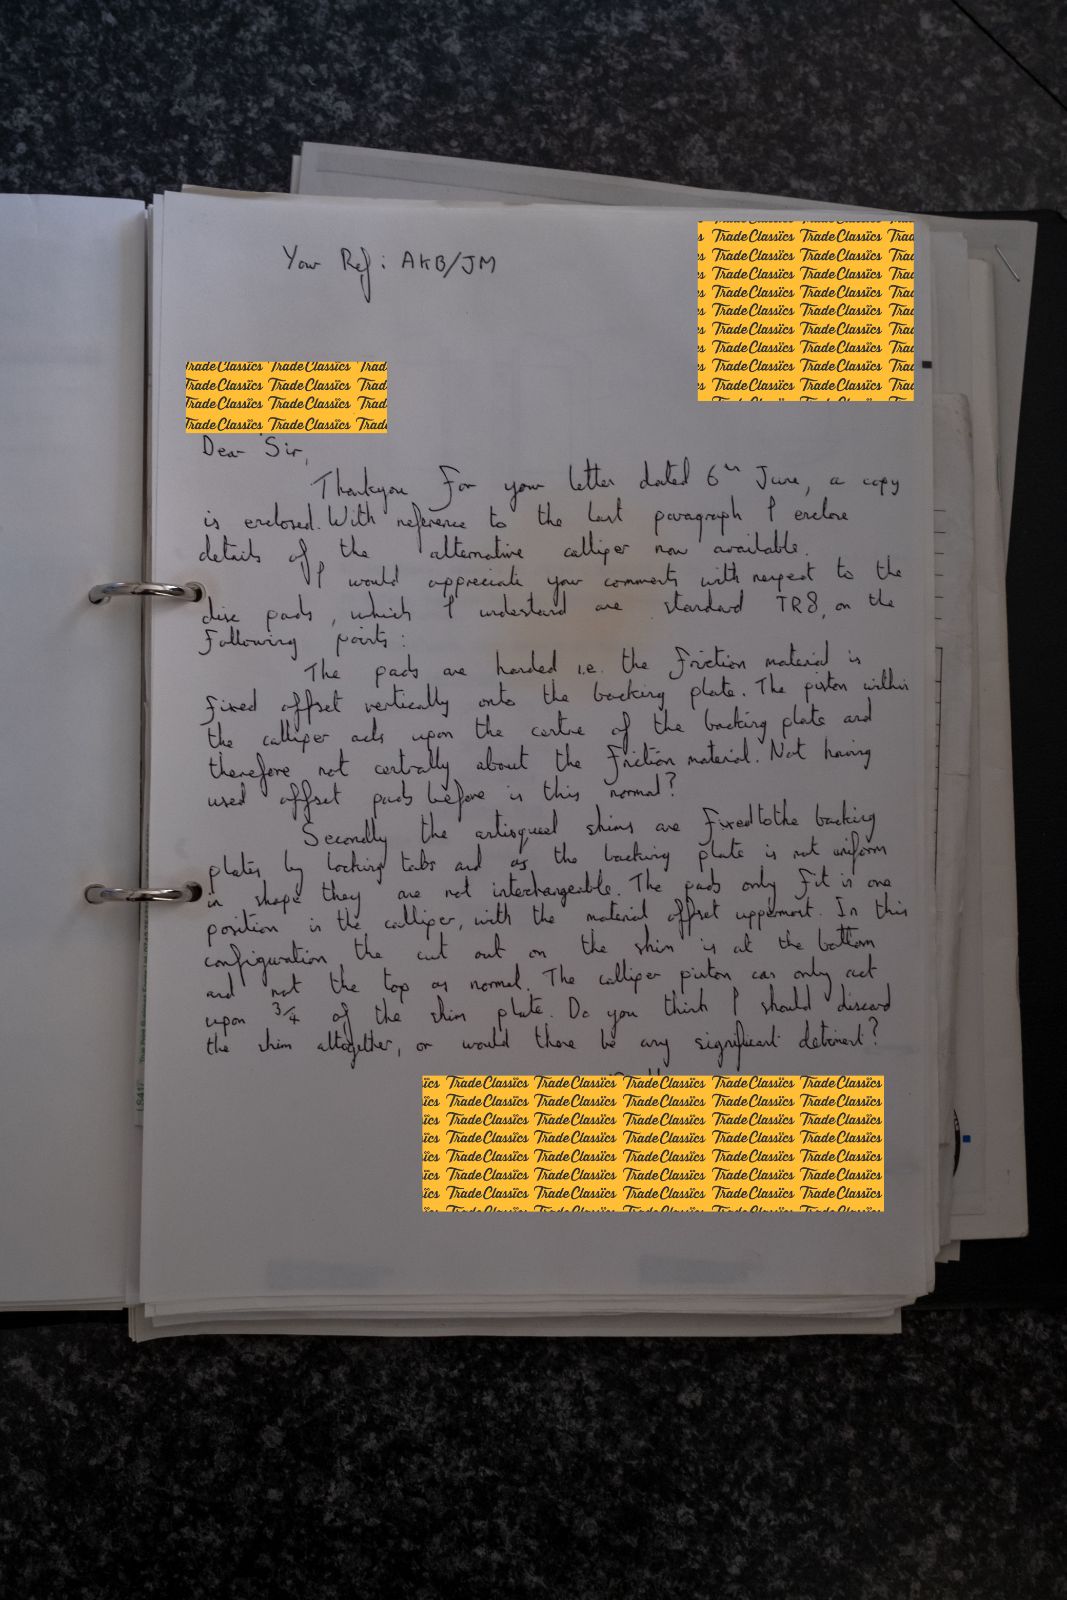 Your Ref: AKB/JM
Trade Classics
Trade Classics
Dear Sir,
Thankyou for your letter dated 6th June, a copy
is enclosed. With reference to the last paragraph I enclose
details of the alternative calliper now available.
I would appreciate your comments with respect to the
disc pads, which I understand are standard TR8, on the
following points:
The pads are handed i.e. the friction material is
fixed offset vertically onto the backing plate. The piston within
the calliper acts upon the centre of the backing plate and
therefore not centrally about the friction material. Not having
used offset pads before is this normal?
Secondly the antisqueel shims are fixed to the backing
plates by locking tabs and as the backing plate is not uniform
in shape they are not interchangeable. The pads only fit in one
position in the calliper, with the material offset uppermost. In this
configuration the cut out on the shim is at the bottom
and not the top as normal. The calliper piston can only act
upon 3/4 of the shim plate. Do you think I should discard
the shim altogether, or would there be any significant detriment?
Trade Classics